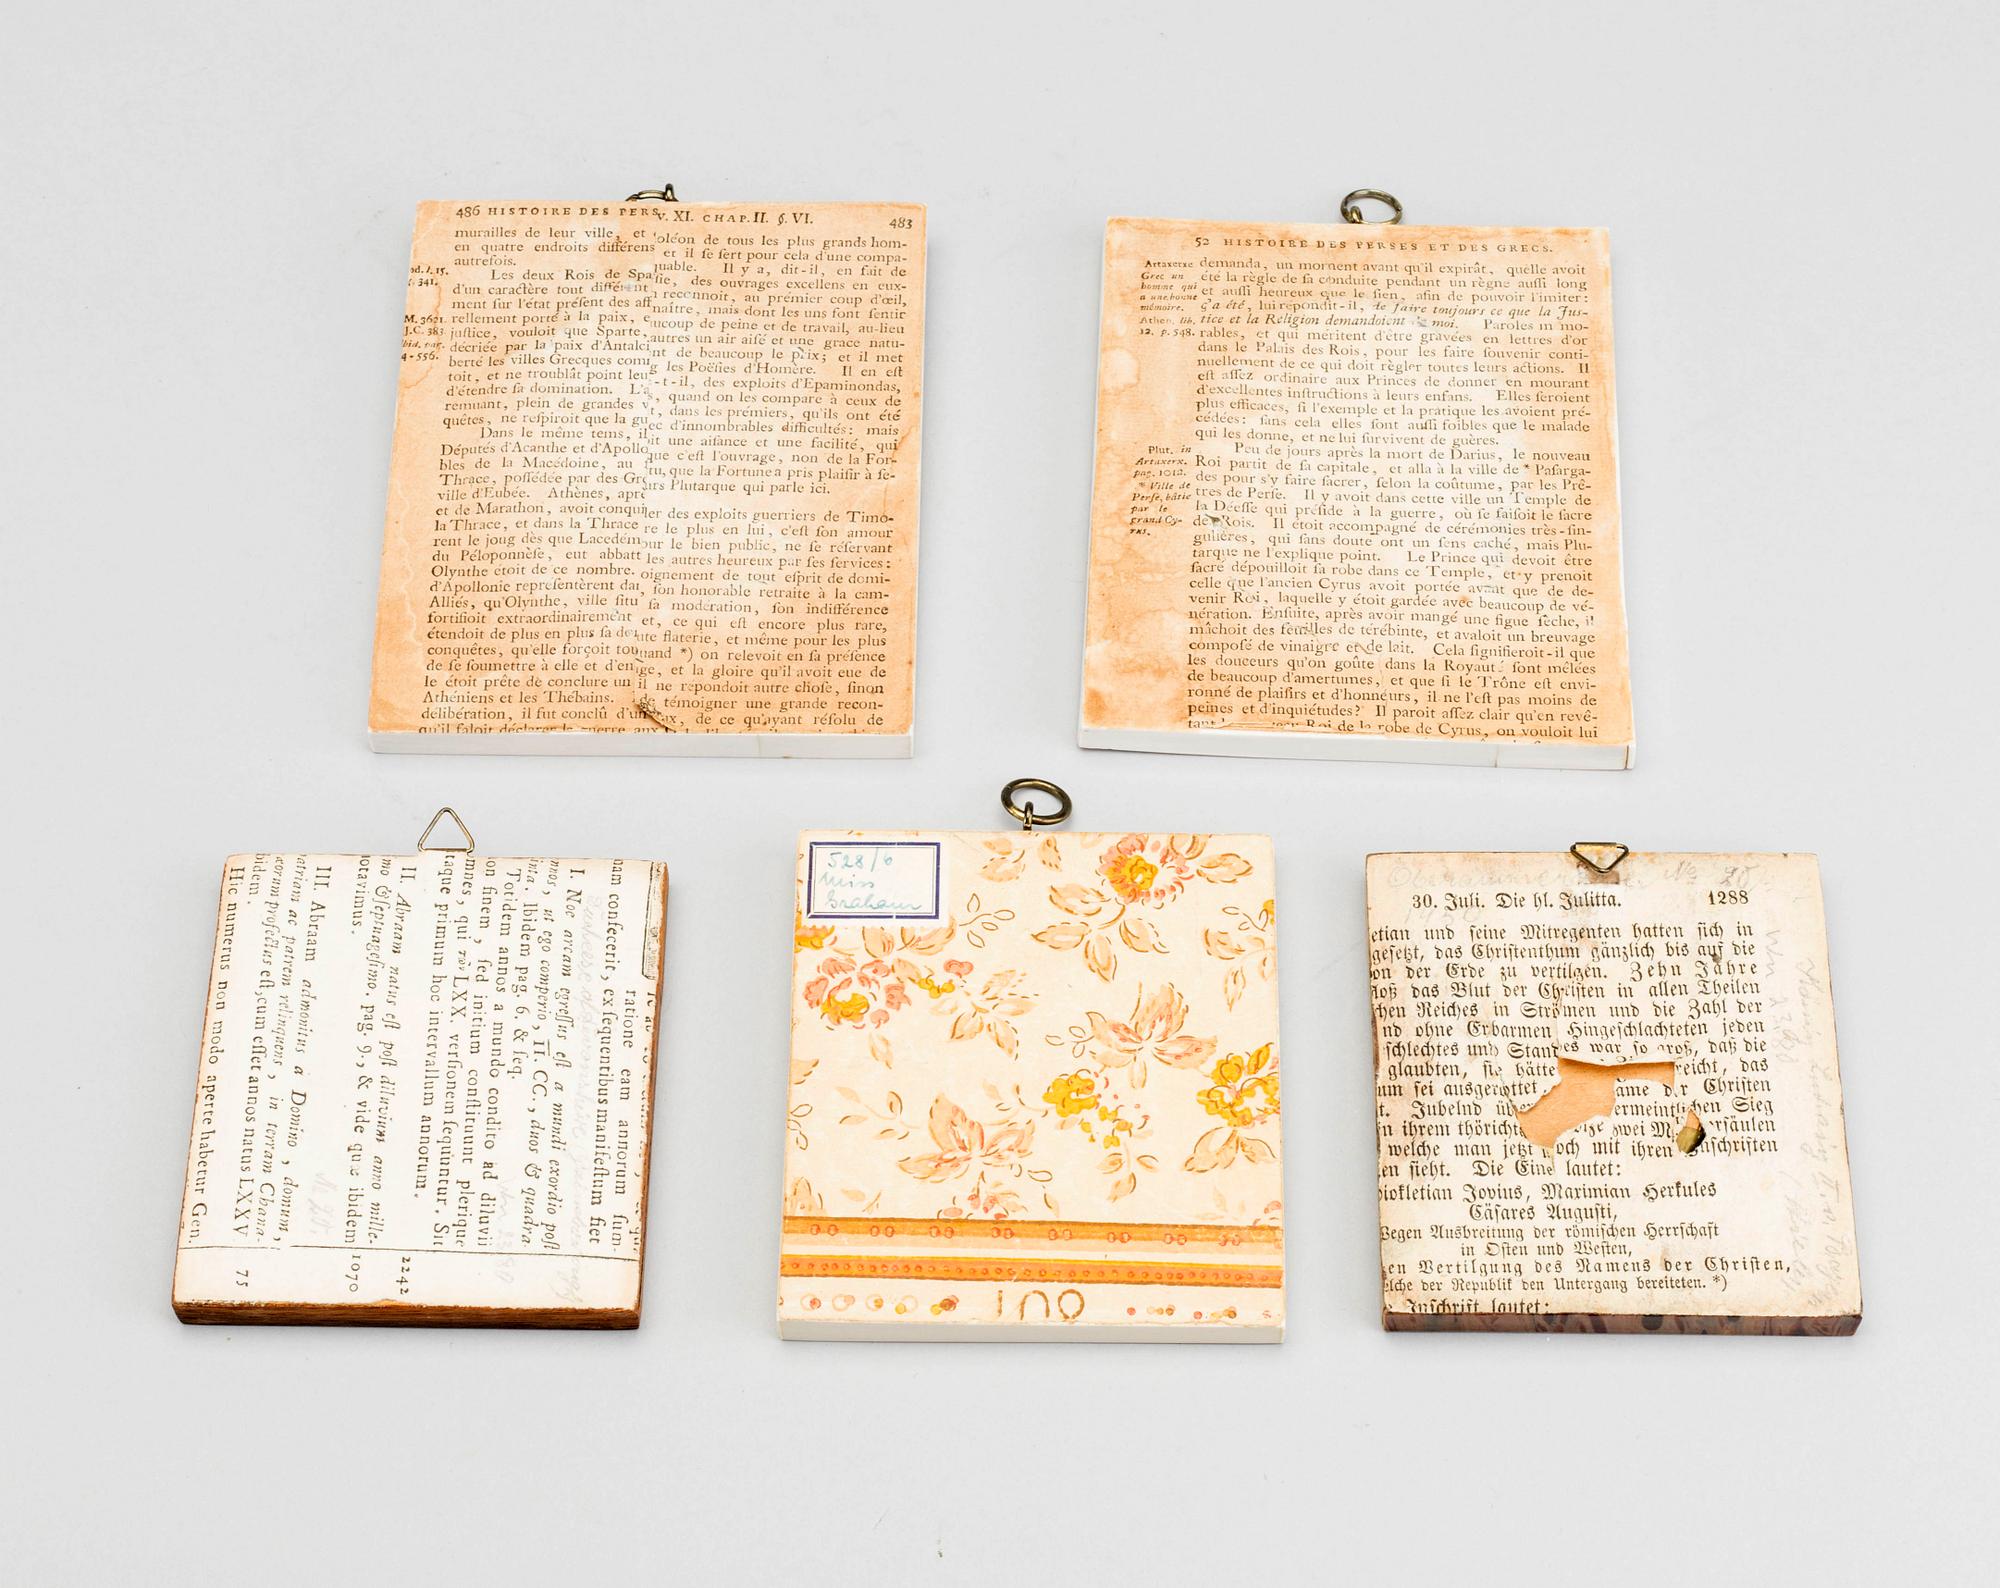 486 HISTOIRE DES PERS
murailles de leur ville, et
en quatre endroits différens
autrefois.
Les deux Rois de Spa
d'un caractère tout différent
ment ſur l'état préſent des aff
rellement porté à la paix, e
juſtice, vouloit que Sparte,
décriée par la paix d'Antalci
berté les villes Grecques comm
toit, et ne troublât point leur
d'étendre ſa domination. L'a
remuant, plein de grandes v
quêtes, ne reſpiroit que la gu
Dans le même tems, il
Députés d'Acanthe et d'Apollo
bles de la Macédoine, au
Thrace, poſſédée par des Gre
ville d'Eubée. Athènes, aprè
et de Marathon, avoit conqui
la Thrace, et dans la Thrace
rent le joug dès que Lacedém
du Péloponnèſe, eut abbatt
Olynthe étoit de ce nombre.
d'Apollonie repréſentèrent da
Alliés, qu'Olynthe, ville ſitu
fortifioit extraordinairement
étendoit de plus en plus ſa do
conquêtes, qu'elle forçoit tou
de ſe ſoumettre à elle et d'en
le étoit prête de conclure un
Athéniens et les Thébains.
délibération, il fut conclû d'un
qu'il faloit déclarer la guerre aux
od. l. 15.
341.
M. 3621.
J.C. 383.
ibid. pag.
4-556.
v. XI. CHAP. II. §. VI. 483
oléon de tous les plus grands hom-
et il ſe ſert pour cela d'une compa-
quable. Il y a, dit-il, en fait de
ſie, des ouvrages excellens en eux-
reconnoit, au prémier coup d'œil,
naître, mais dont les uns font ſentir
ucoup de peine et de travail, au-lieu
autres un air aiſé et une grace natu-
nt de beaucoup le prix; et il met
g les Poëſies d'Homère. Il en eſt
-t-il, des exploits d'Epaminondas,
s, quand on les compare à ceux de
t, dans les prémiers, qu'ils ont été
ec d'innombrables difficultés: mais
it une aiſance et une facilité, qui
que c'eſt l'ouvrage, non de la For-
tu, que la Fortune a pris plaiſir à ſe-
urs Plutarque qui parle ici.
ler des exploits guerriers de Timo-
re le plus en lui, c'eſt ſon amour
our le bien public, ne ſe réſervant
les autres heureux par ſes ſervices:
oignement de tout eſprit de domi-
ſon honorable retraite à la cam-
ſa modération, ſon indifférence
et, ce qui eſt encore plus rare,
ute flaterie, et même pour les plus
uand *) on relevoit en ſa préſence
ge, et la gloire qu'il avoit eue de
il ne répondoit autre choſe, ſinon
de témoigner une grande recon-
ux, de ce qu'ayant réſolu de
52 HISTOIRE DES PERSES ET DES GRECS.
Artaxerxe
Grec un
homme qui
a une bonne
mémoire.
Athen. lib.
12. p. 548.
demanda, un moment avant qu'il expirât, quelle avoit
été la règle de ſa conduite pendant un règne auſſi long
et auſſi heureux que le ſien, afin de pouvoir l'imiter:
ç'a été, lui répondit-il, de faire toujours ce que la Juſ-
tice et la Réligion demandoient de moi. Paroles mémo-
rables, et qui méritent d'être gravées en lettres d'or
dans le Palais des Rois, pour les faire ſouvenir conti-
nuellement de ce qui doit règler toutes leurs actions. Il
eſt aſſez ordinaire aux Princes de donner en mourant
d'excellentes inſtructions à leurs enfans. Elles ſeroient
plus efficaces, ſi l'exemple et la pratique les avoient pré-
cédées: ſans cela elles ſont auſſi foibles que le malade
qui les donne, et ne lui ſurvivent de guères.
Plut. in
Artaxerx.
pag. 1012.
* Ville de
Perſe, bâtie
par le
grand Cy-
rus.
Peu de jours après la mort de Darius, le nouveau
Roi partit de ſa capitale, et alla à la ville de * Paſarga-
des pour s'y faire ſacrer, ſelon la coûtume, par les Prê-
tres de Perſe. Il y avoit dans cette ville un Temple de
la Déeſſe qui préſide à la guerre, où ſe faiſoit le ſacre
des Rois. Il étoit accompagné de cérémonies très-ſin-
gulières, qui ſans doute ont un ſens caché, mais Plu-
tarque ne l'explique point. Le Prince qui devoit être
ſacré dépouilloit ſa robe dans ce Temple, et y prenoit
celle que l'ancien Cyrus avoit portée avant que de de-
venir Roi, laquelle y étoit gardée avec beaucoup de vé-
nération. Enſuite, après avoir mangé une figue ſeche, il
mâchoit des feuilles de térébinte, et avaloit un breuvage
compoſé de vinaigre et de lait. Cela ſignifieroit-il que
les douceurs qu'on goûte dans la Royauté ſont mêlées
de beaucoup d'amertumes, et que ſi le Trône eſt envi-
ronné de plaiſirs et d'honneurs, il ne l'eſt pas moins de
peines et d'inquiétudes? Il paroit aſſez clair qu'en revê-
tant Roi de la robe de Cyrus, on vouloit lui
ratione eam annorum ſum-
nam confecerit, ex ſequentibus manifeſtum fiet
I. Noe arcam egreſſus eſt a mundi exordio poſt
nnos, ut ego comperio, II. CC., duos & quadra-
inta. Ibidem pag. 6. & ſeq.
Totidem annos a mundo condito ad diluvii
on finem, ſed initium conſtituunt plerique
omnes, qui τῶν LXX. verſionem ſequuntur. Sit
taque primum hoc intervallum annorum. 2242
II. Abraam natus eſt poſt diluvium anno mille-
mo & ſeptuageſimo. pag. 9., & vide quæ ibidem
otavimus. 1070
III. Abraam admonitus a Domino, domum,
atriam ac patrem relinquens, in terram Chana-
æorum profectus eſt, cum eſſet annos natus LXXV
bidem. 75
Hic numerus non modo aperte habetur Gen.
528/6
Miss
Graham
30. Juli. Die hl. Julitta. 1288
etian und ſeine Mitregenten hatten ſich in
geſetzt, das Chriſtenthum gänzlich bis auf die
on der Erde zu vertilgen. Zehn Jahre
floß das Blut der Chriſten in allen Theilen
chen Reiches in Strömen und die Zahl der
nd ohne Erbarmen Hingeſchlachteten jeden
ſchlechtes und Standes war ſo groß, daß die
glaubten, ſie hätte reicht, das
um ſei ausgerottet, ame der Chriſten
t. Jubelnd über ermeintlichen Sieg
n ihrem thöricht zwei M rſäulen
welche man jetzt noch mit ihren Inſchriften
en ſieht. Die Eine lautet:
Diokletian Jovius, Maximian Herkules
Cäſares Auguſti,
Wegen Ausbreitung der römiſchen Herrſchaft
in Oſten und Weſten,
en Vertilgung des Namens der Chriſten,
elche der Republik den Untergang bereiteten. *)
e Inſchrift lautet: